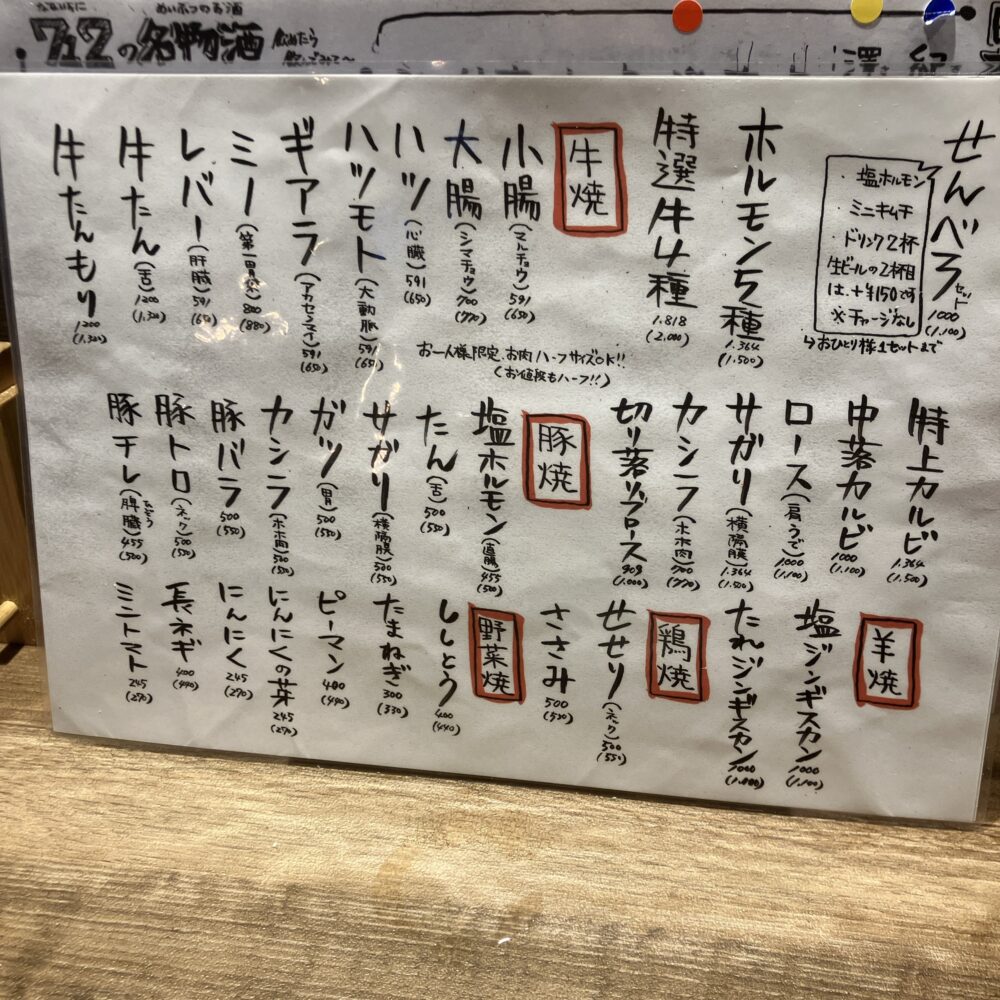 712の名物酒 飲めたら
飲んでみて〜
せんべろセット 1000 (1.100)
塩ホルモン
ミニキムチ
ドリンク2杯
生ビールの2杯目
は、+¥150です
※チャージなし
↳おひとり様1セットまで
ホルモン5種 1.364 (1.500)
特選牛4種 1.818 (2.000)
牛焼
小腸(マルチョウ) 591 (650)
大腸(シマチョウ) 700 (770)
ハツ(心臓) 591 (650)
ハツモト(大動脈) 591 (650)
ギアラ(アカセンマイ) 591 (650)
ミノ(第一胃袋) 800 (880)
レバー(肝臓) 591 (650)
牛たん(舌) 1200 (1.320)
牛たんもり 1200 (1.320)
お一人様限定、お肉ハーフサイズOK!!
(お値段もハーフ!!)
特上カルビ 1.364 (1.500)
中落カルビ 1000 (1.100)
ロース(肩うで) 1000 (1.100)
サガリ(横隔膜) 1.364 (1.500)
カシラ(ホホ肉) 700 (770)
切り落リブロース 909 (1.000)
豚焼
塩ホルモン(直腸) 455 (500)
たん(舌) 500 (550)
サガリ(横隔膜) 500 (550)
ガツ(胃) 500 (550)
カシラ(ホホ肉) 500 (550)
豚バラ 500 (550)
豚トロ(ネック) 500 (550)
豚チレ(脾臓) 455 (500)
羊焼
塩ジンギスカン 1000 (1.100)
たれジンギスカン 1000 (1.100)
鶏焼
せせり(ネック) 500 (550)
ささみ 500 (550)
野菜焼
ししとう 400 (440)
たまねぎ 300 (330)
ピーマン 400 (440)
にんにくの芽 245 (270)
にんにく 245 (270)
長ネギ 400 (440)
ミニトマト 245 (270)